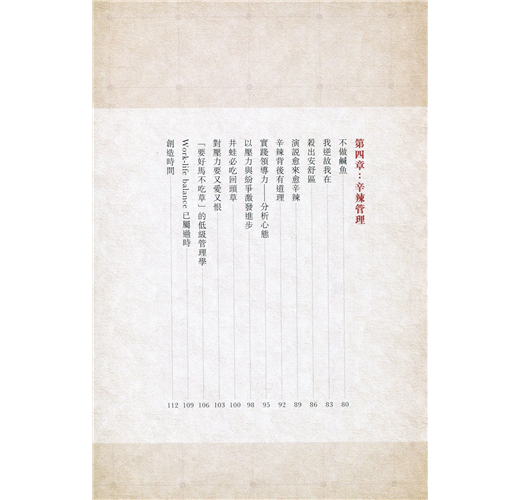 第四章：辛辣管理
不做鹹魚 80
我逆故我在 83
殺出安舒區 86
演說愈來愈辛辣 89
辛辣背後有道理 92
實踐領導力——分析心態 95
以壓力與紛爭激發進步 98
井蛙必吃回頭草 100
對壓力要又愛又恨 103
「要好馬不吃草」的低級管理學 106
Work-life balance 已屬過時 109
創造時間 112